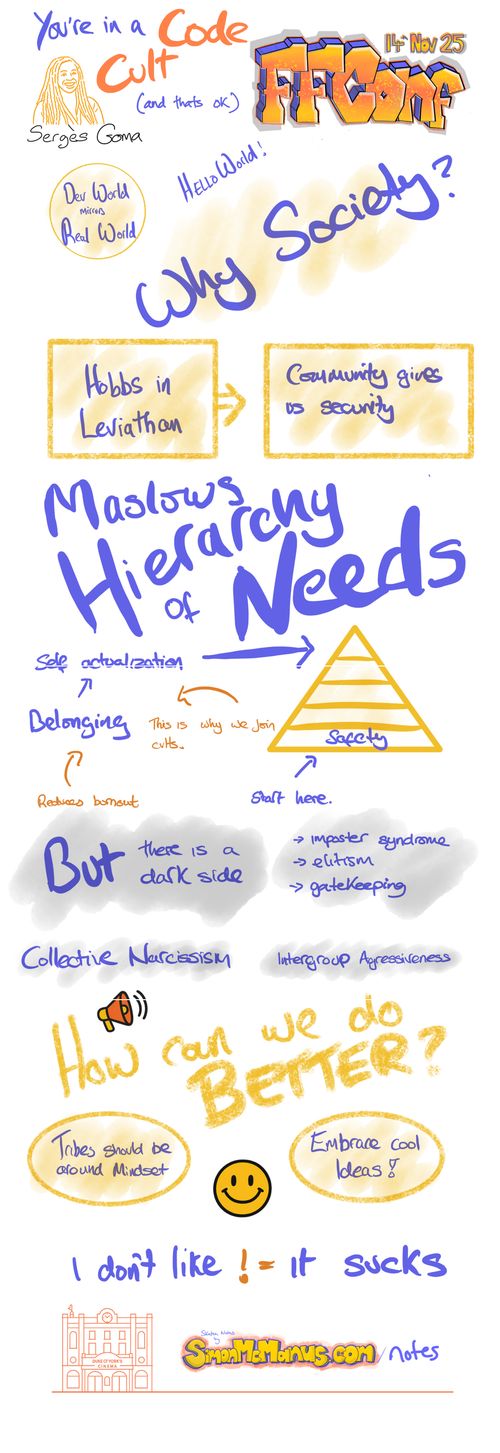 You're in a Code
Cult
(and thats ok)
14th Nov 25
FFConf
Sergès Goma
Dev World
mirrors
Real World
Hello World!
Why Society?
Hobbs in
Leviathan
Community gives
us security
Maslows
Hierarchy
of Needs
Self actualization
Belonging
This is why we join
cults.
Safety
Reduces burnout
Start here.
But there is a
dark side
→ imposter syndrome
→ elitism
→ gatekeeping
Collective Narcissism
Intergroup Agressiveness
How can we do
BETTER?
Tribes should be
around Mindset
Embrace cool
Ideas!
I don't like != it sucks
DUKE OF YORK'S
CINEMA
Sketch Notes
by
SimonMcManus.com/notes